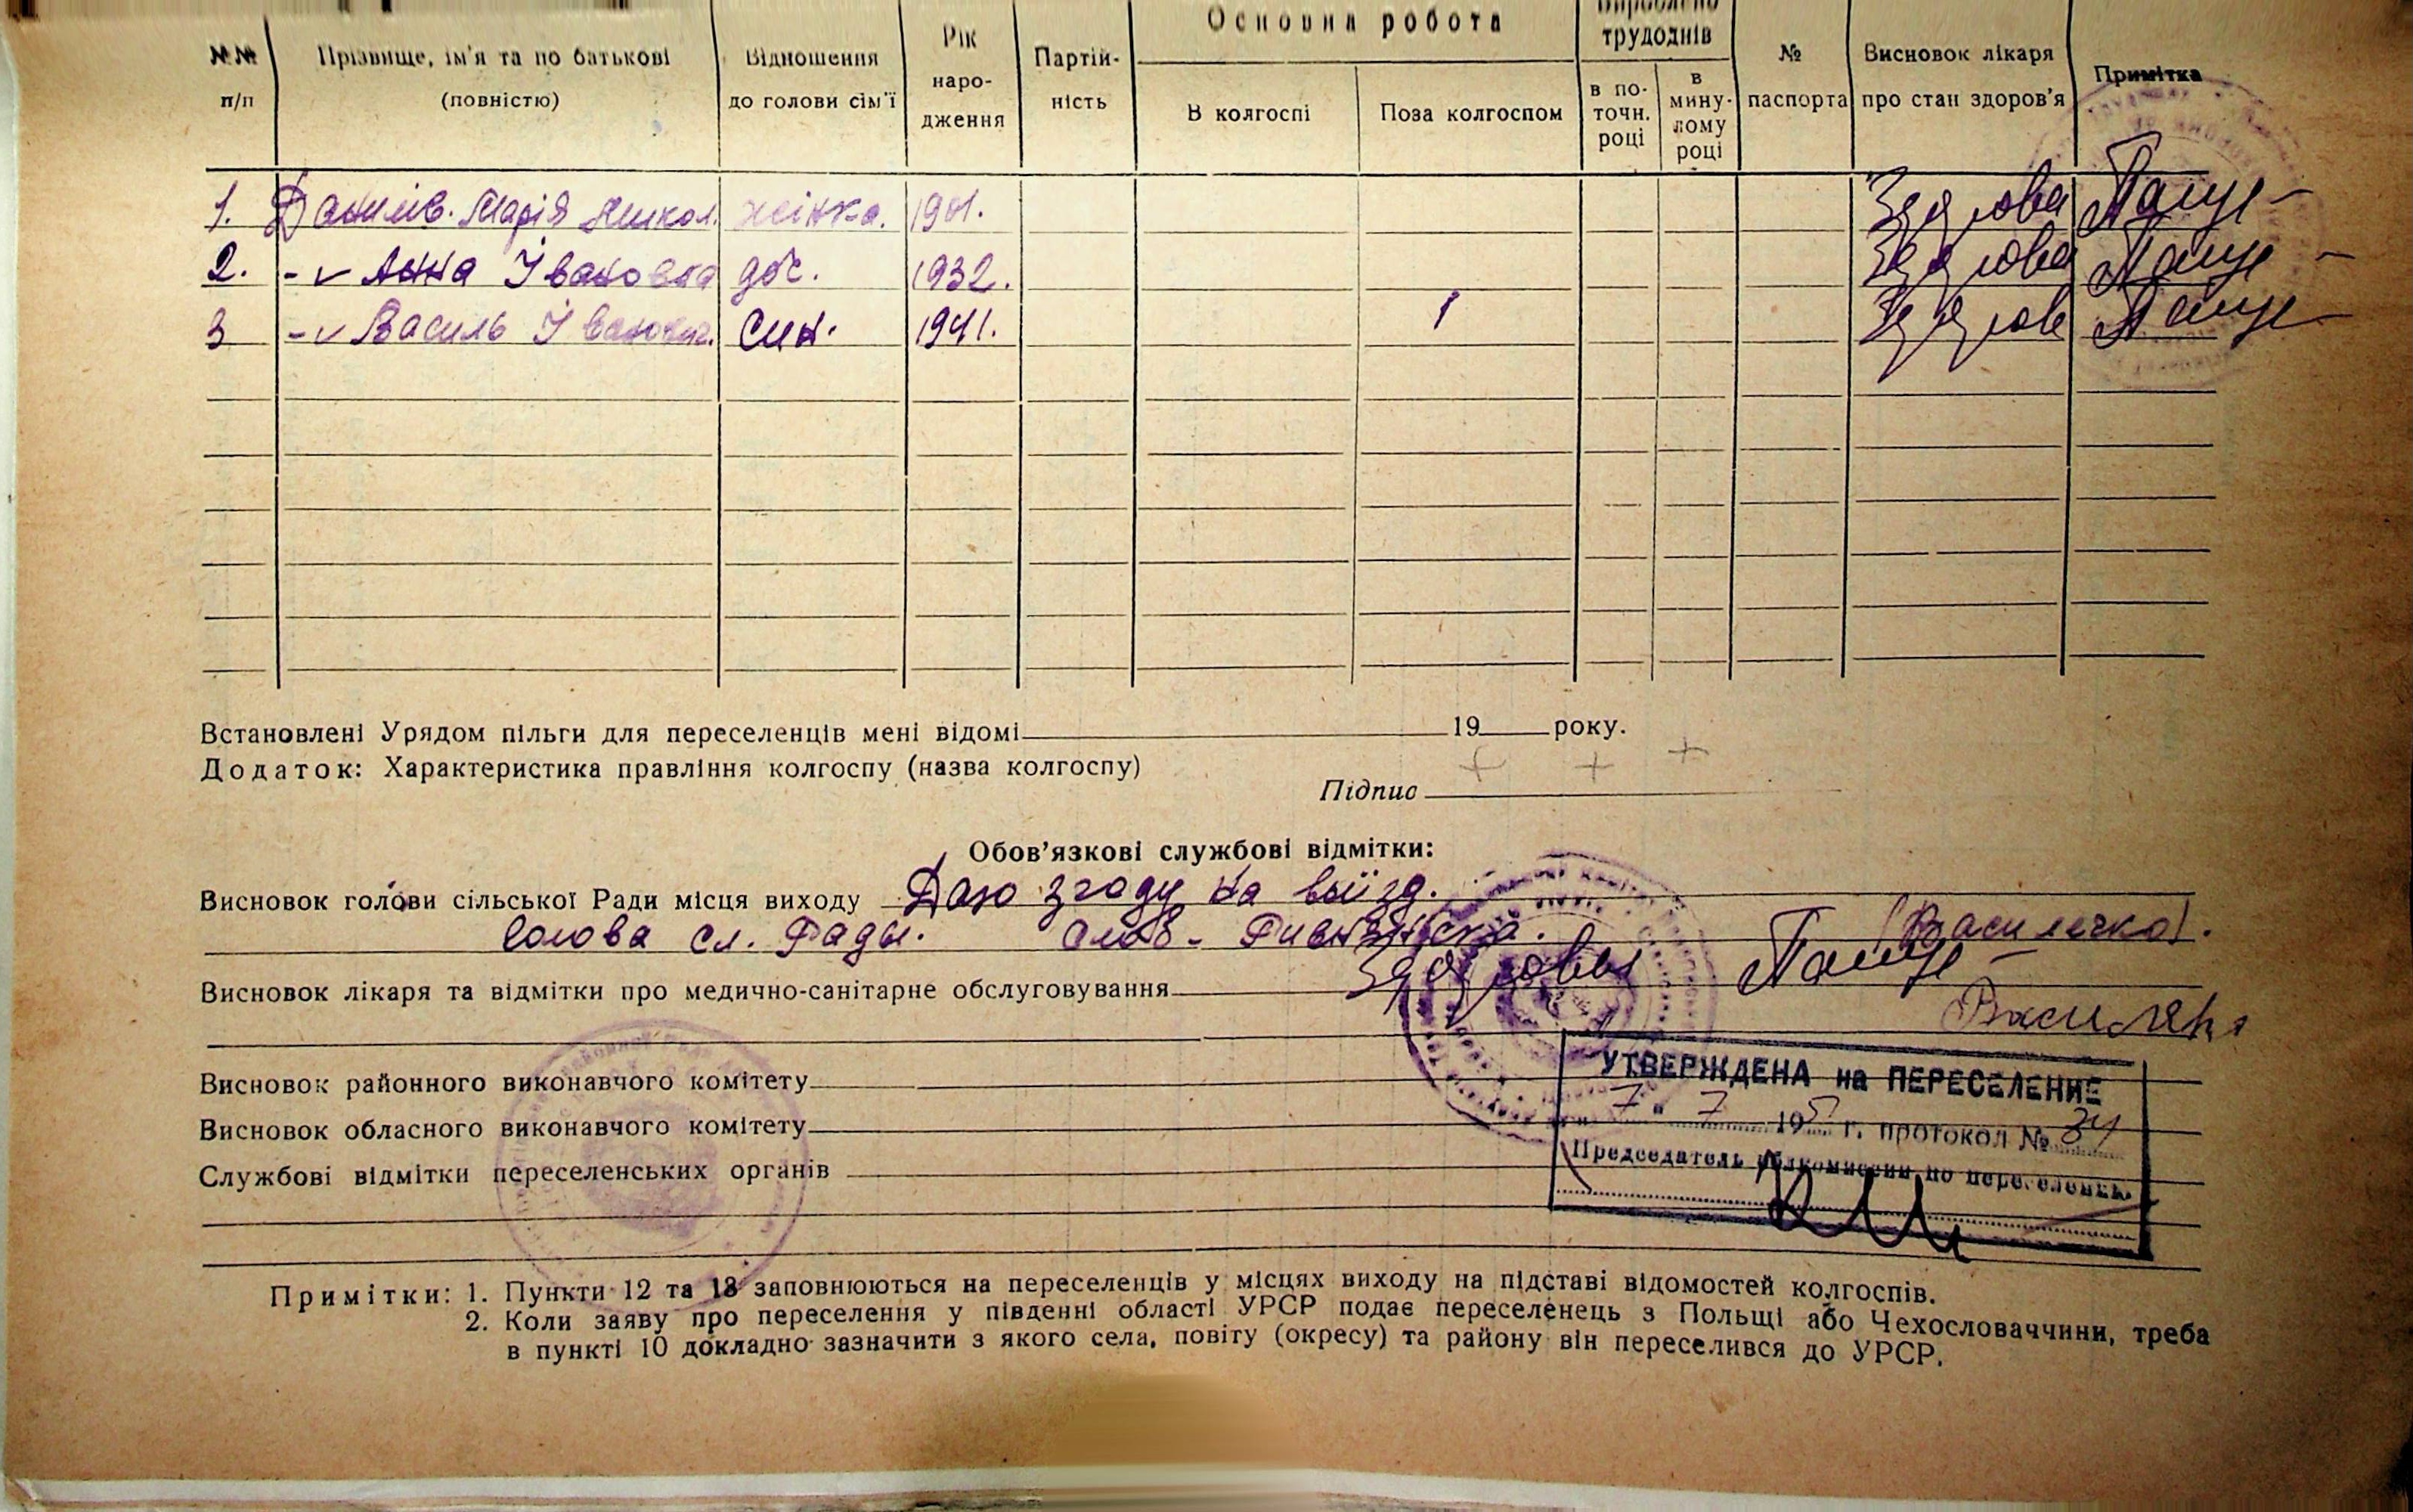 №№ п/п
Прізвище, ім'я та по батькові (повністю)
Відношення до голови сім'ї
Рік наро-дження
Партій-ність
Основна робота
В колгоспі
Поза колгоспом
трудоднів
в по-точн. році
в мину-лому році
№ паспорта
Висновок лікаря про стан здоров'я
Примітка
1. Данилів. Марія Микол. жінка. 1901. Здорова
2. -"- Анна Івановна доч. 1932. Здорова
3 -"- Василь Іванович. син. 1941. Здоров
Встановлені Урядом пільги для переселенців мені відомі 19 року.
Додаток: Характеристика правління колгоспу (назва колгоспу)
+ + +
Підпис
Обов'язкові службові відмітки:
Висновок голови сільської Ради місця виходу Даю згоду на выїзд.
Голова сл. Рады. (Василечко).
Висновок лікаря та відмітки про медично-санітарне обслуговування Здоровы
Висновок районного виконавчого комітету
Висновок обласного виконавчого комітету
Службові відмітки переселенських органів
УТВЕРЖДЕНА на ПЕРЕСЕЛЕНИЕ
"7" 7 195 г. протокол № 34
Председатель облкомиссии по переселению
Примітки: 1. Пункти 12 та 13 заповнюються на переселенців у місцях виходу на підставі відомостей колгоспів.
2. Коли заяву про переселення у південні області УРСР подає переселенець з Польщі або Чехословаччини, треба
в пункті 10 докладно зазначити з якого села, повіту (окресу) та району він переселився до УРСР.